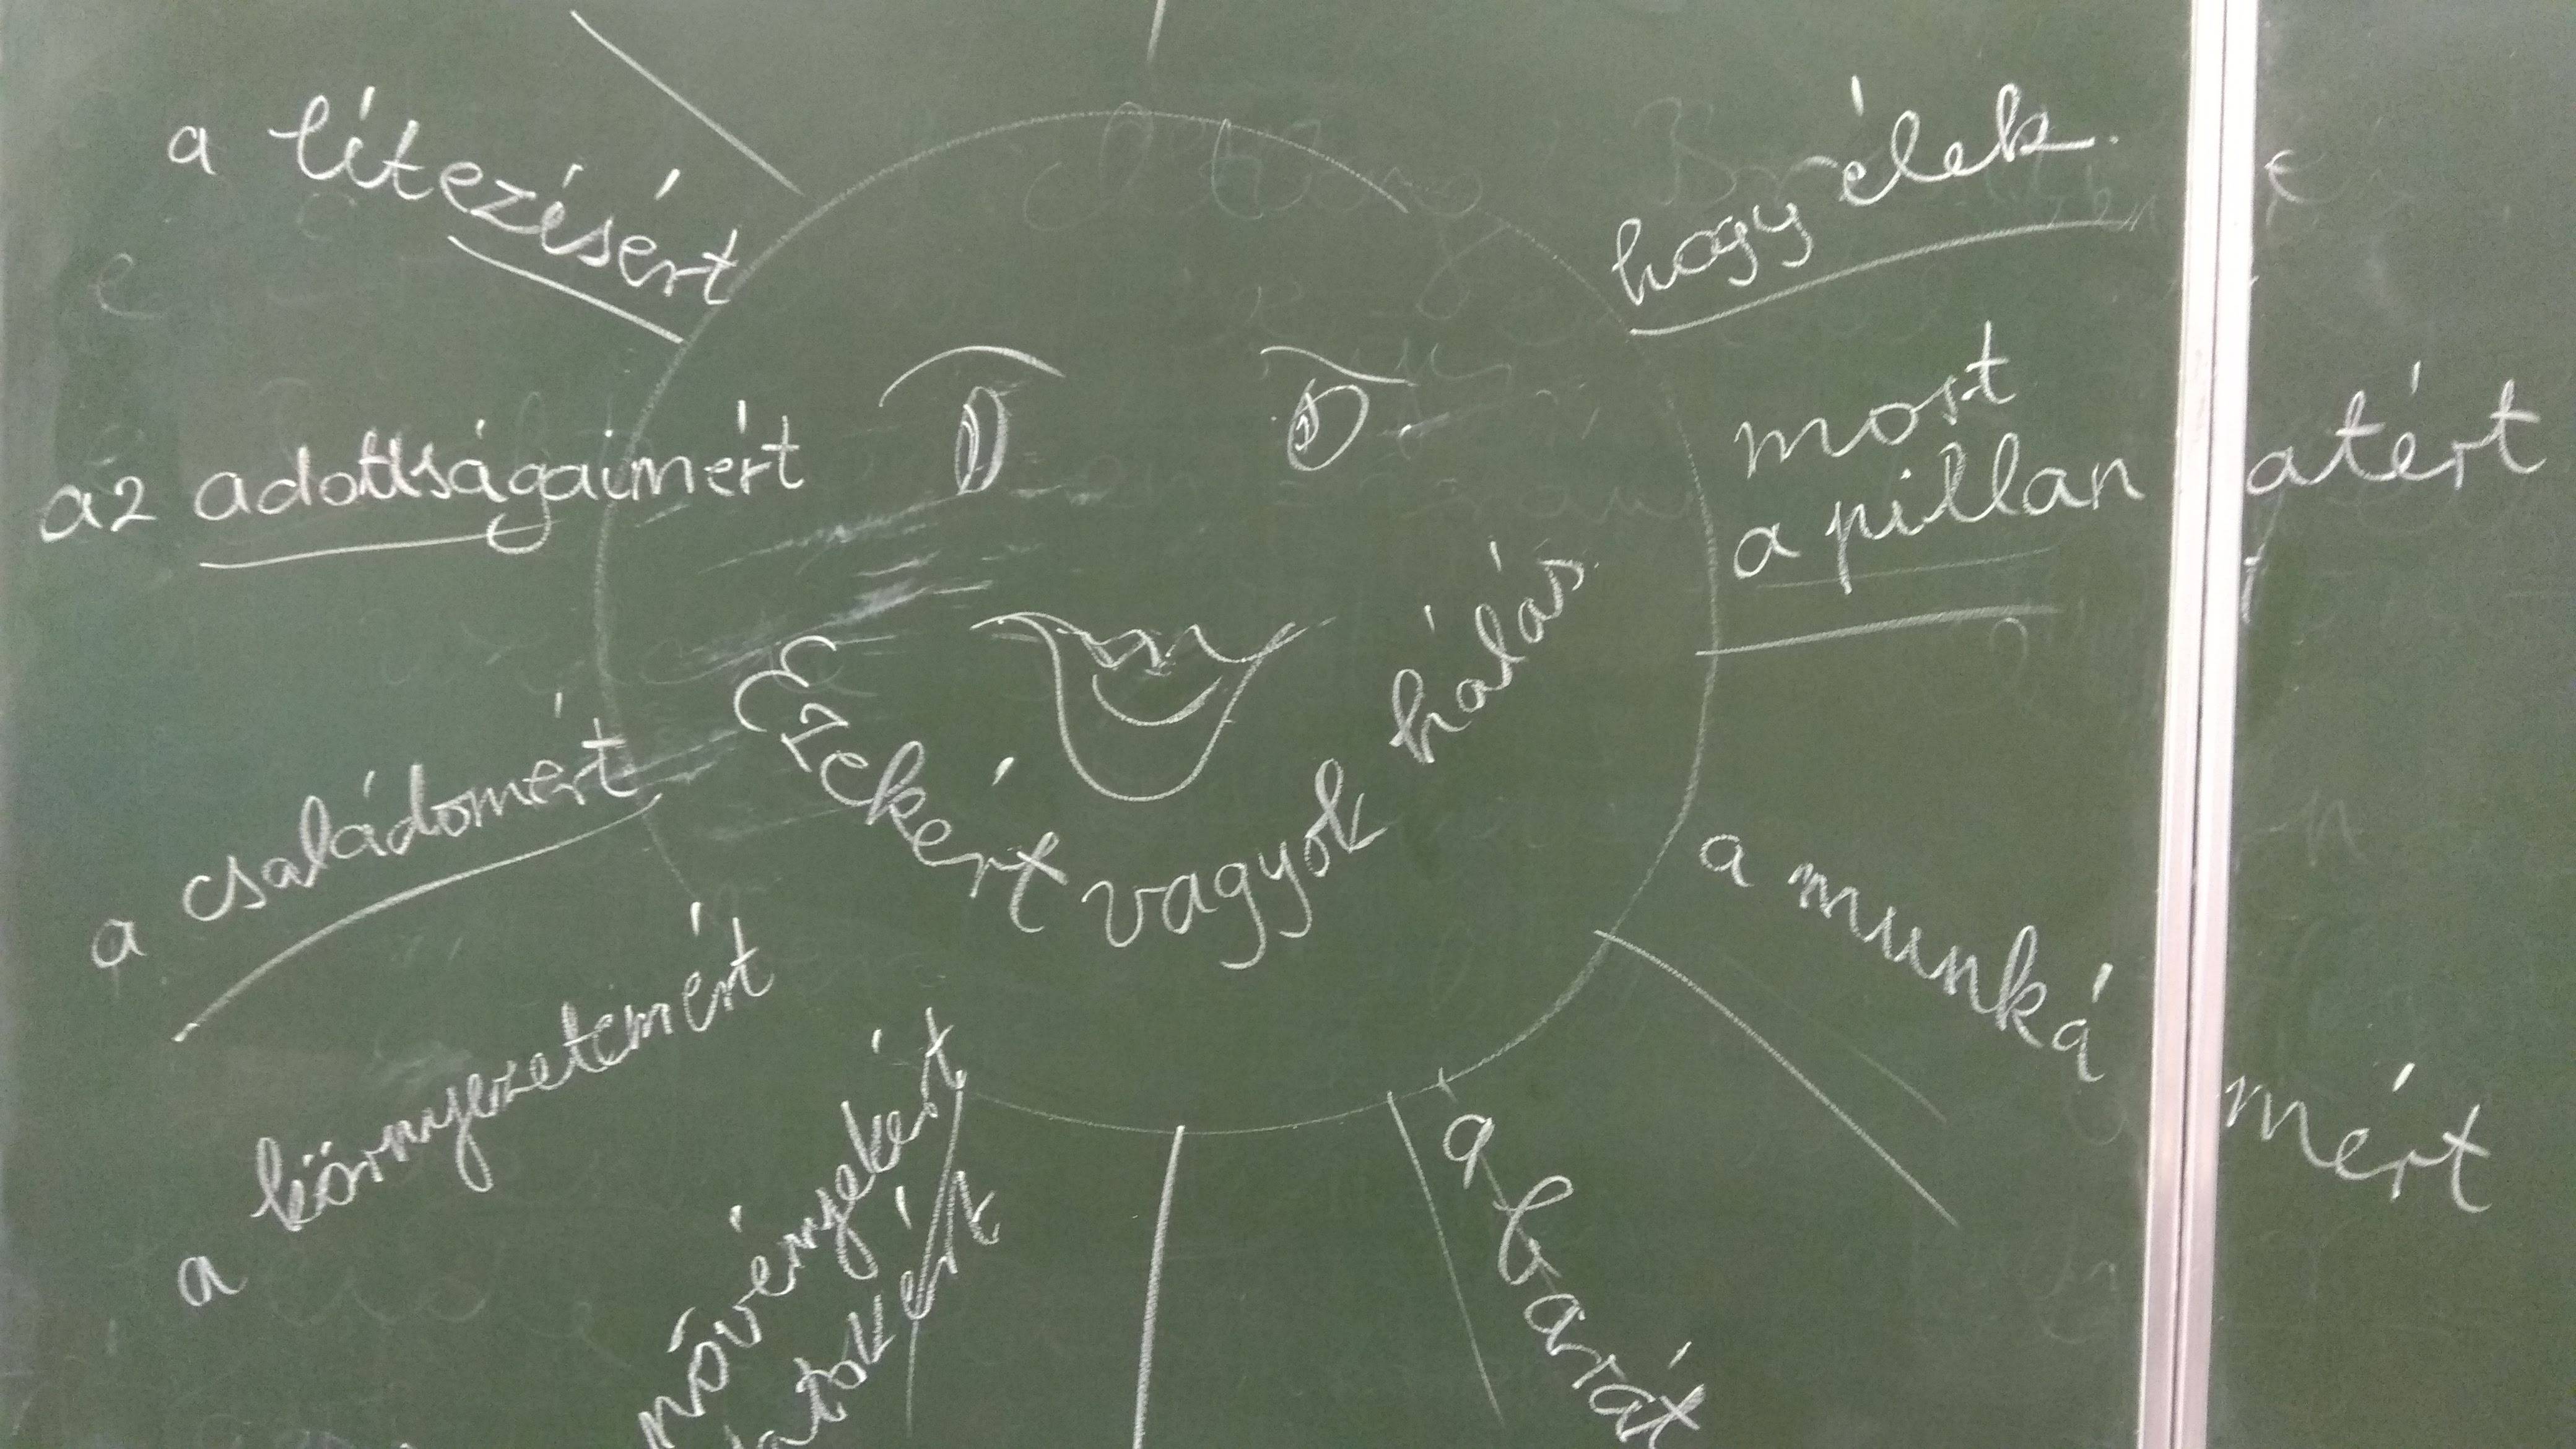 a létezésért
hogy élek.
az adottságaimért
most
a pillanatért
Ezekért vagyok hálás.
a családomért
a munkámért
a környezetemért
növényekért
atokért
a barát